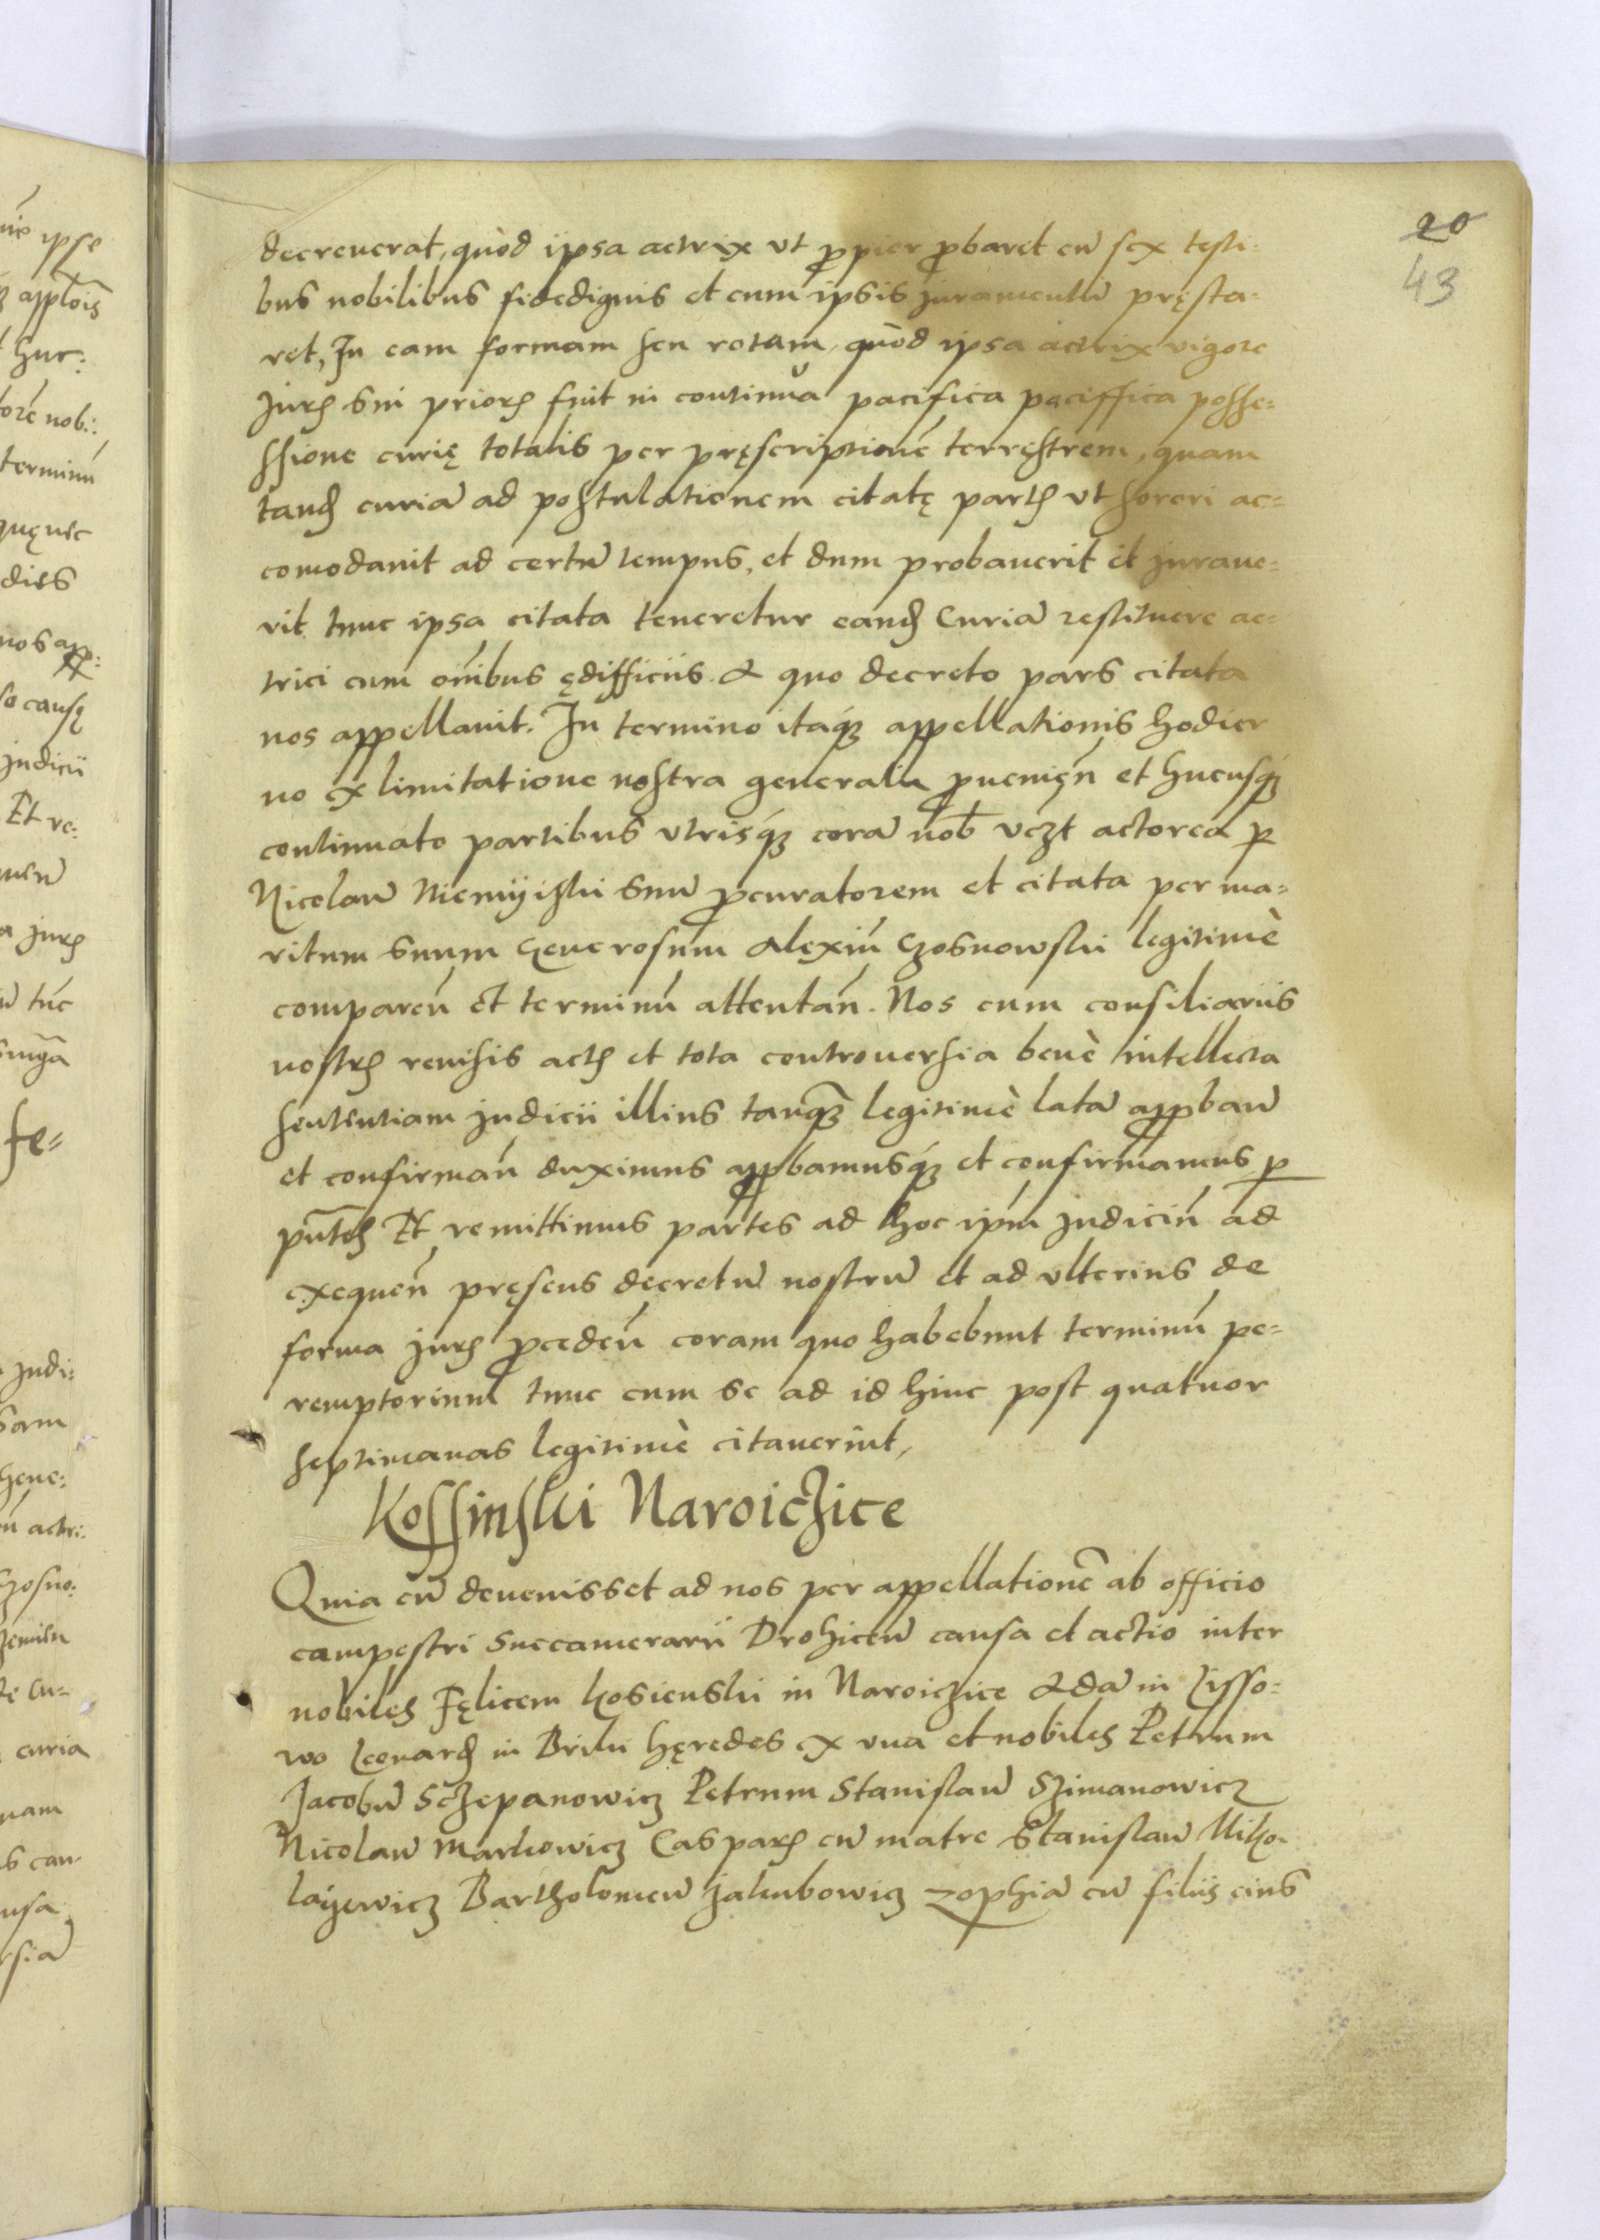 20
43
decreuerat, quòd ipsa actrix vt ꝓpier ꝓbaret cū sex testi:
bus nobilibus fidedignis et cum ipsis iuramentū pręsta:
ret, In eam formam seu rotam, quòd ipsa actrix vigore
Jurꝭ sui priorꝭ fuit in continua pacifica paciffica posse:
ssione curię totalis per pręscriptionē terrestrem, quam
tandꝭ curiā ad postulationem citatę partꝭ vt sorori ac:
comodauit ad certū tempus, et dum probauerit et iuraue:
rit tunc ipsa citata teneretur eandꝭ Curiā restituere ac:
trici cum om̄ibus ędifficiis. A quo decreto pars citata
nos appellauit. In termino itaqꝫ appellationis hodier
no ex limitatione nostra generali ꝓuenięn̄ et hucusqꝫ
continuato partibus vtrisqꝫ corā nob̄ vczt actorea ꝑ
Nicolaū Niemyiski suū ꝓcuratorem et citata per ma:
ritum suum Generosum Alexiū Czosnowski legitimè
compareń et terminū attentań. Nos cum consiliariis
nostrꝭ reuisis actꝭ et tota controuersia benè intellecta
sententiam Judicii illius tanqꝫ legitimè latā apꝓbań
et confirmań duximus apꝓbamusqꝫ et confirmamus ꝑ
pn̄tꝭ Et remittimus partes ad hoc ip̄m Judiciū ad
exequeń pręsens decretū nostrū et ad vlterius de
forma Jurꝭ ꝓcedeń coram quo habebunt terminū pe:
remptorium tunc cum se ad id hinc post quatuor
septimanas legitimè citauerint,
Kossinski Naroiczice
Quia cū deuenisset ad nos per appellationē ab officio
campestri Succamerarii Drohiceń causa et actio inter
nobiles Fęlicem Kosienski in Naroiczice Adā in Lisso:
wo Leonardꝭ in Briki hęredes ex vna et nobiles Petrum
Jacobū Sczepanowicz Petrum Stanislaū Szimanowicz
Nicolaū Markowicz Casparꝭ cū matre Stanislaū Miko:
layewicz Bartholomeū Jakubowicz Zophiā cū filiis eius